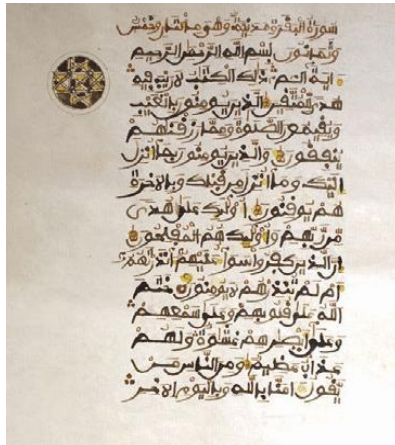 سورة البقرة مدنية وهي مائتان وخمس
وثمانون بسم الله الرحمن الرحيم
اية الم ذلك الكتب لا ريب فيه
هدى للمتقين الذين يومنون بالغيب
ويقيمون الصلوة ومما رزقنهم
ينفقون والذين يومنون بما انزل
اليك وما انزل من قبلك وبالاخرة
هم يوقنون اولئك على هدى
من ربهم واولئك هم المفلحون
ان الذين كفروا سواء عليهم انذرتهم
ام لم تنذرهم لا يومنون ختم
الله على قلوبهم وعلى سمعهم
وعلى ابصرهم غشوة ولهم
عذاب عظيم ومن الناس من
يقول امنا بالله وباليوم الاخر